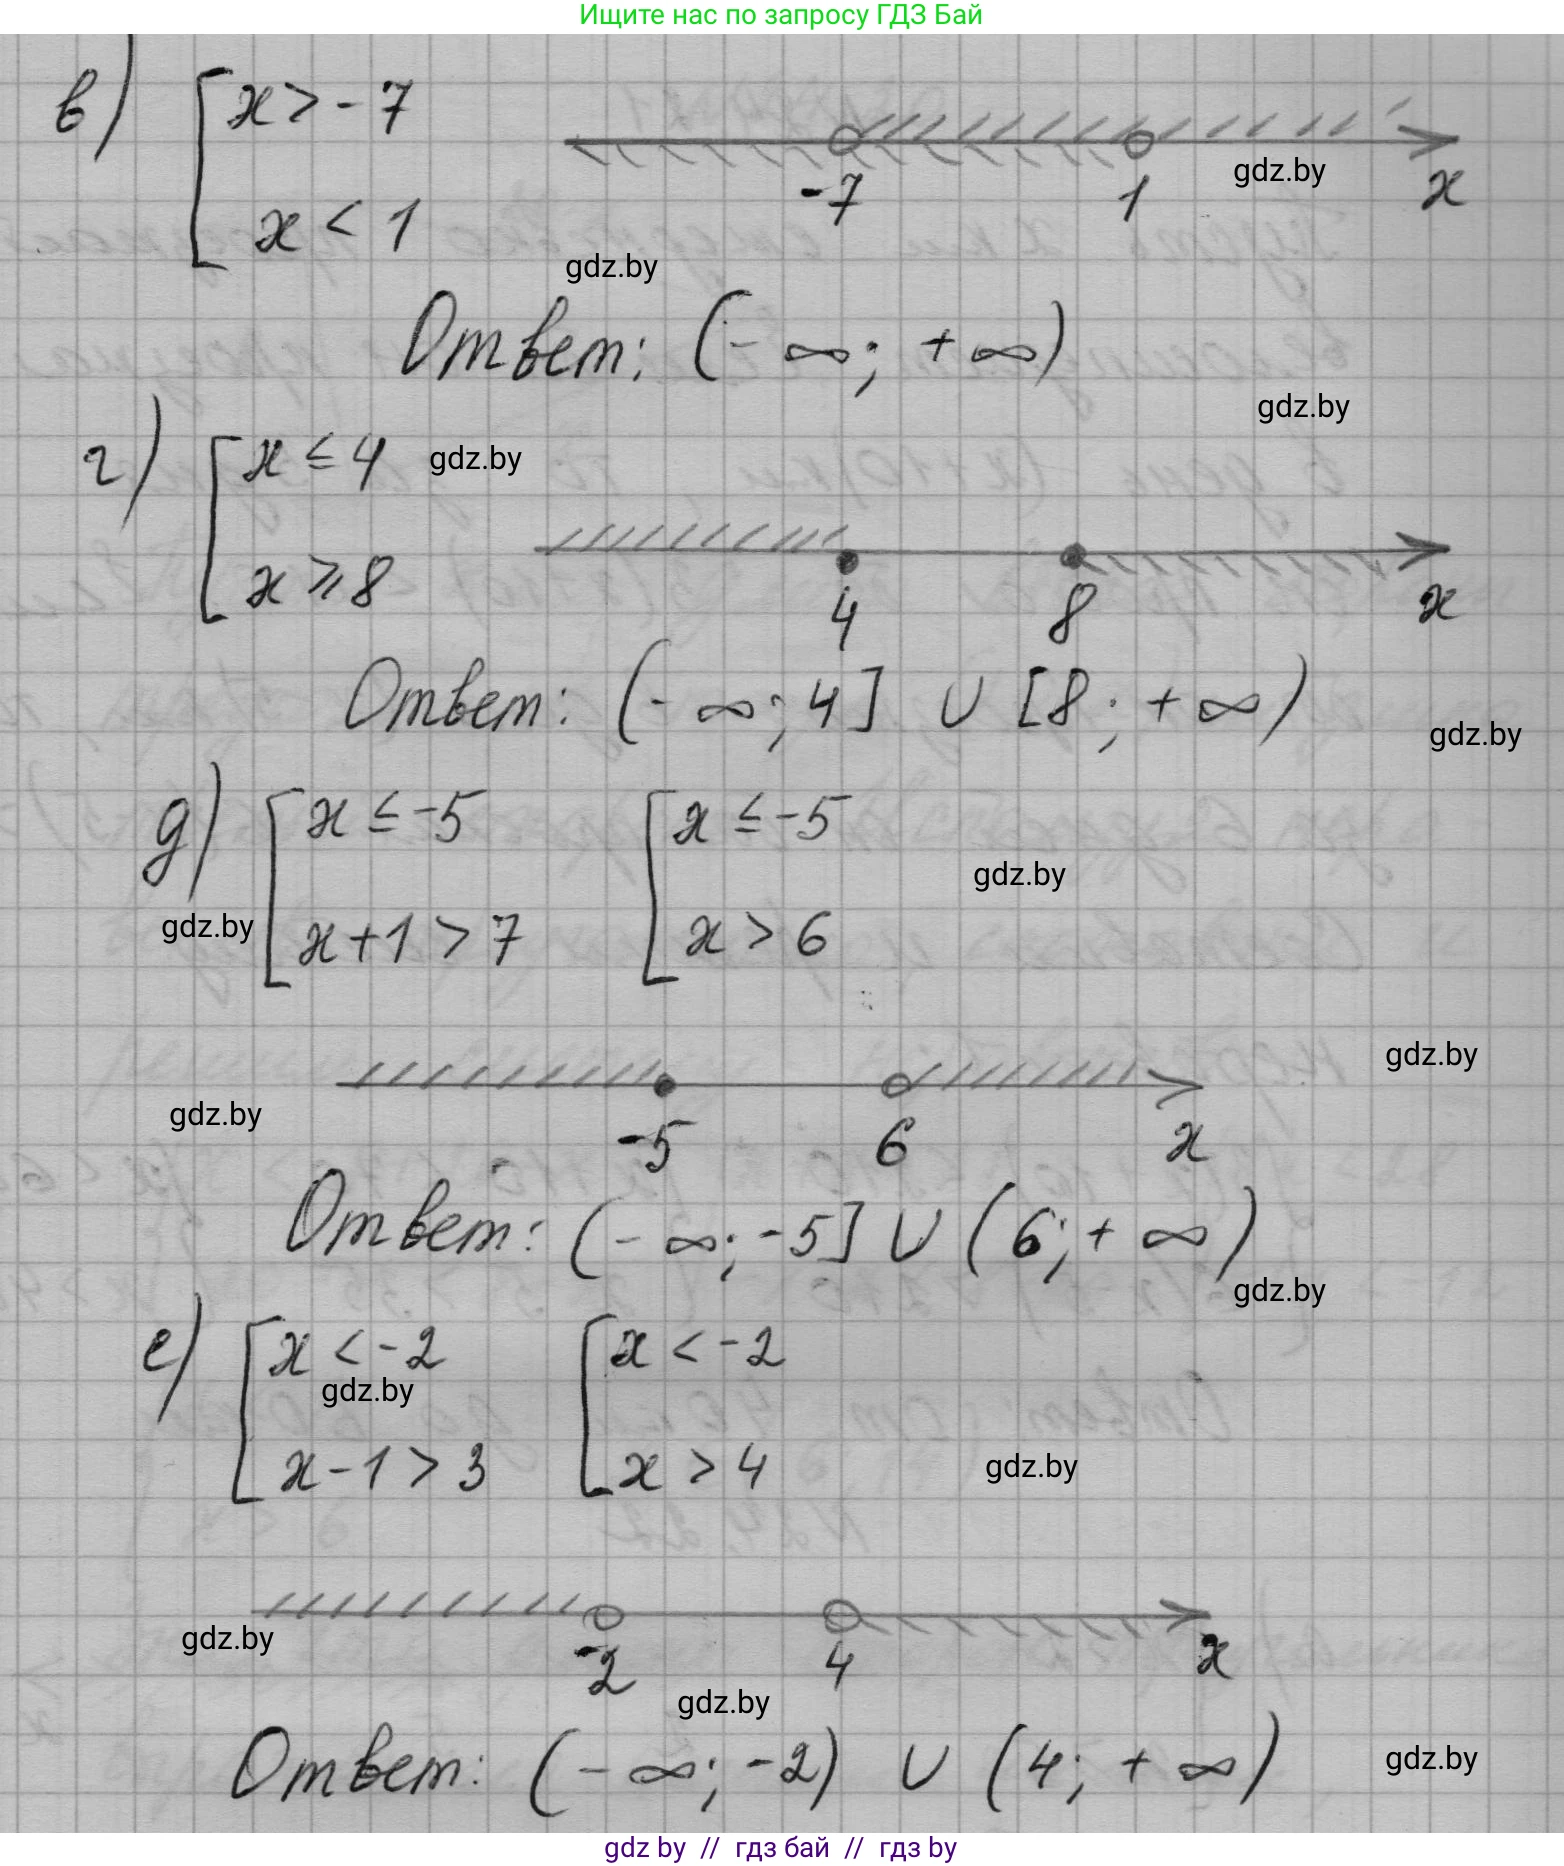 Ищите нас по запросу ГДЗ Бай
в) [ x > -7
x < 1
-7 1 x
gdz.by
gdz.by
Ответ: (-∞; +∞)
gdz.by
г) [ x ≤ 4
gdz.by
x ≥ 8
4 8 x
Ответ: (-∞; 4] ∪ [8; +∞)
gdz.by
д) [ x ≤ -5 [ x ≤ -5
gdz.by
gdz.by
x+1 > 7 x > 6
gdz.by
gdz.by
-5 6 x
Ответ: (-∞; -5] ∪ (6; +∞)
gdz.by
е) [ x < -2 [ x < -2
gdz.by
x-1 > 3 x > 4
gdz.by
gdz.by
-2 4 x
gdz.by
Ответ: (-∞; -2) ∪ (4; +∞)
gdz.by
gdz by // гдз бай // гдз by